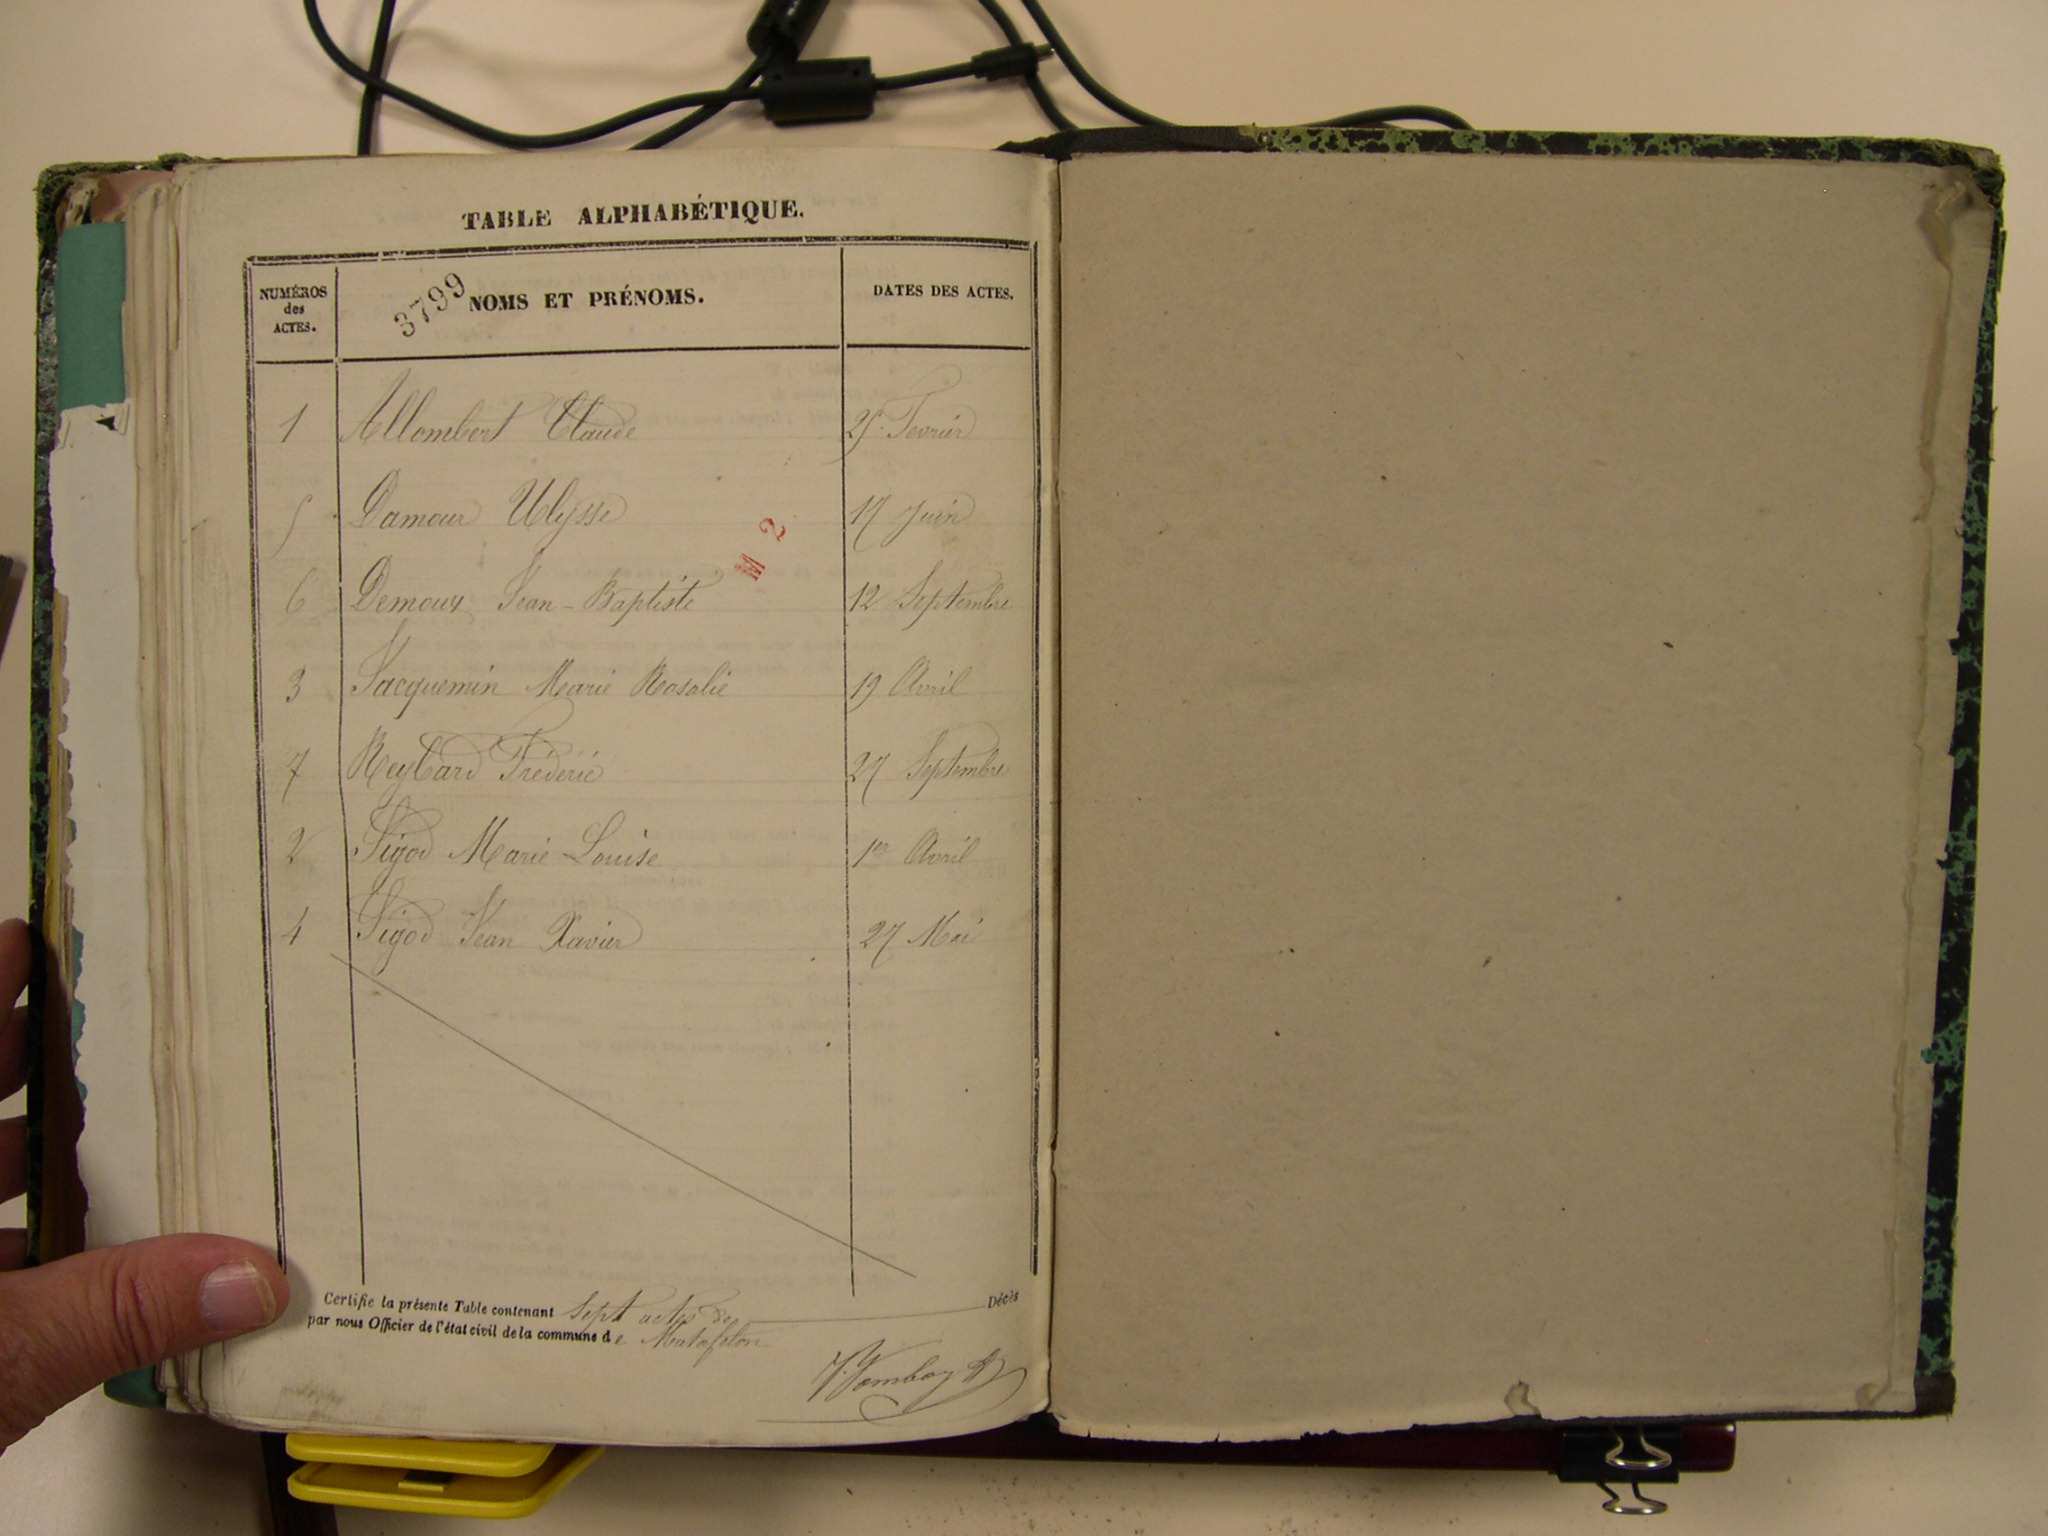 TABLE ALPHABÉTIQUE.
NUMÉROS des ACTES.
3799
NOMS ET PRÉNOMS.
DATES DES ACTES.
1 Allombert Claude 25 Fevrier
5 Damour Ulysse 17 Juin
M 2
6 Demoux Jean-Baptiste 12 Septembre
3 Jacquemin Marie Rosalie 19 Avril
7 Reybard Frédéric 27 Septembre
2 Sigod Marie-Louise 1er Avril
4 Sigod Jean Xavier 27 Mai
Certifie la présente Table contenant Sept actes de Décès
par nous Officier de l'état civil de la commune de Matafelon